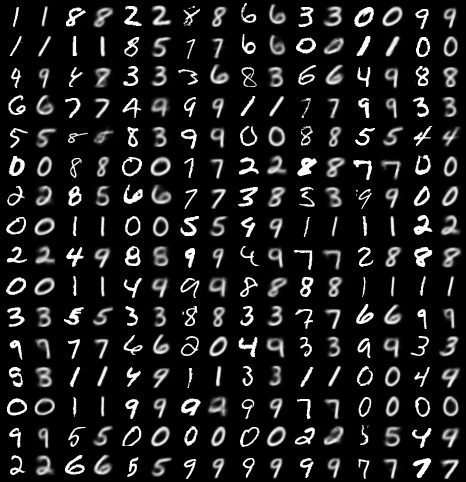 1 1 8 8 2 2 8 8 6 6 3 3 0 0 9 9
1 1 1 1 8 5 7 7 6 6 0 0 1 1 0 0
9 9 8 8 3 3 3 6 8 3 6 6 4 9 8 8
6 6 7 7 4 9 9 9 1 1 7 7 9 9 3 3
5 5 8 5 8 3 9 9 0 0 8 8 5 5 4 4
0 0 8 8 0 0 7 7 2 2 8 8 7 7 0 0
2 2 8 5 6 6 7 7 3 8 3 3 9 9 0 0
0 0 1 1 0 0 5 5 9 9 1 1 1 1 2 2
2 2 4 9 8 8 9 9 4 9 7 7 2 8 8 8
0 0 1 1 4 9 9 9 8 8 8 8 1 1 1 1
3 3 5 5 3 3 8 8 3 3 7 7 6 6 9 9
9 9 7 7 6 6 2 0 4 9 3 3 9 9 3 3
5 3 1 1 4 9 1 1 3 3 1 1 0 0 4 9
0 0 1 1 9 9 9 9 9 9 7 7 0 0 0 0
9 9 5 5 0 0 0 0 0 0 2 2 5 5 4 9
2 2 6 6 5 5 9 9 9 9 9 9 7 7 7 7